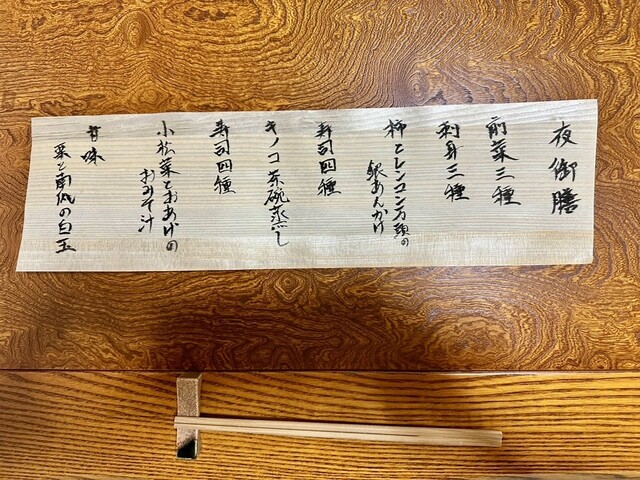 夜御膳
前菜三種
刺身三種
柿とレンコン万頭の
銀あんかけ
寿司四種
キノコ茶碗蒸し
寿司四種
小松菜とおあげの
おみそ汁
甘味
栗と南瓜の白玉